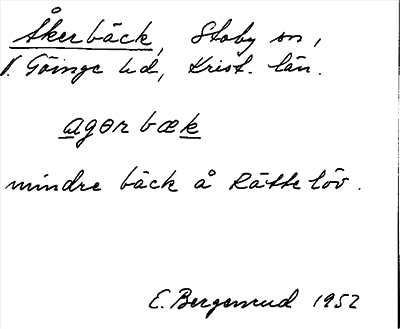 Åkerbäck, Stoby sn,
V. Göinge hd, Krist. län.
agər bæk
mindre bäck å Rättelöv.
E. Bergenrud 1952